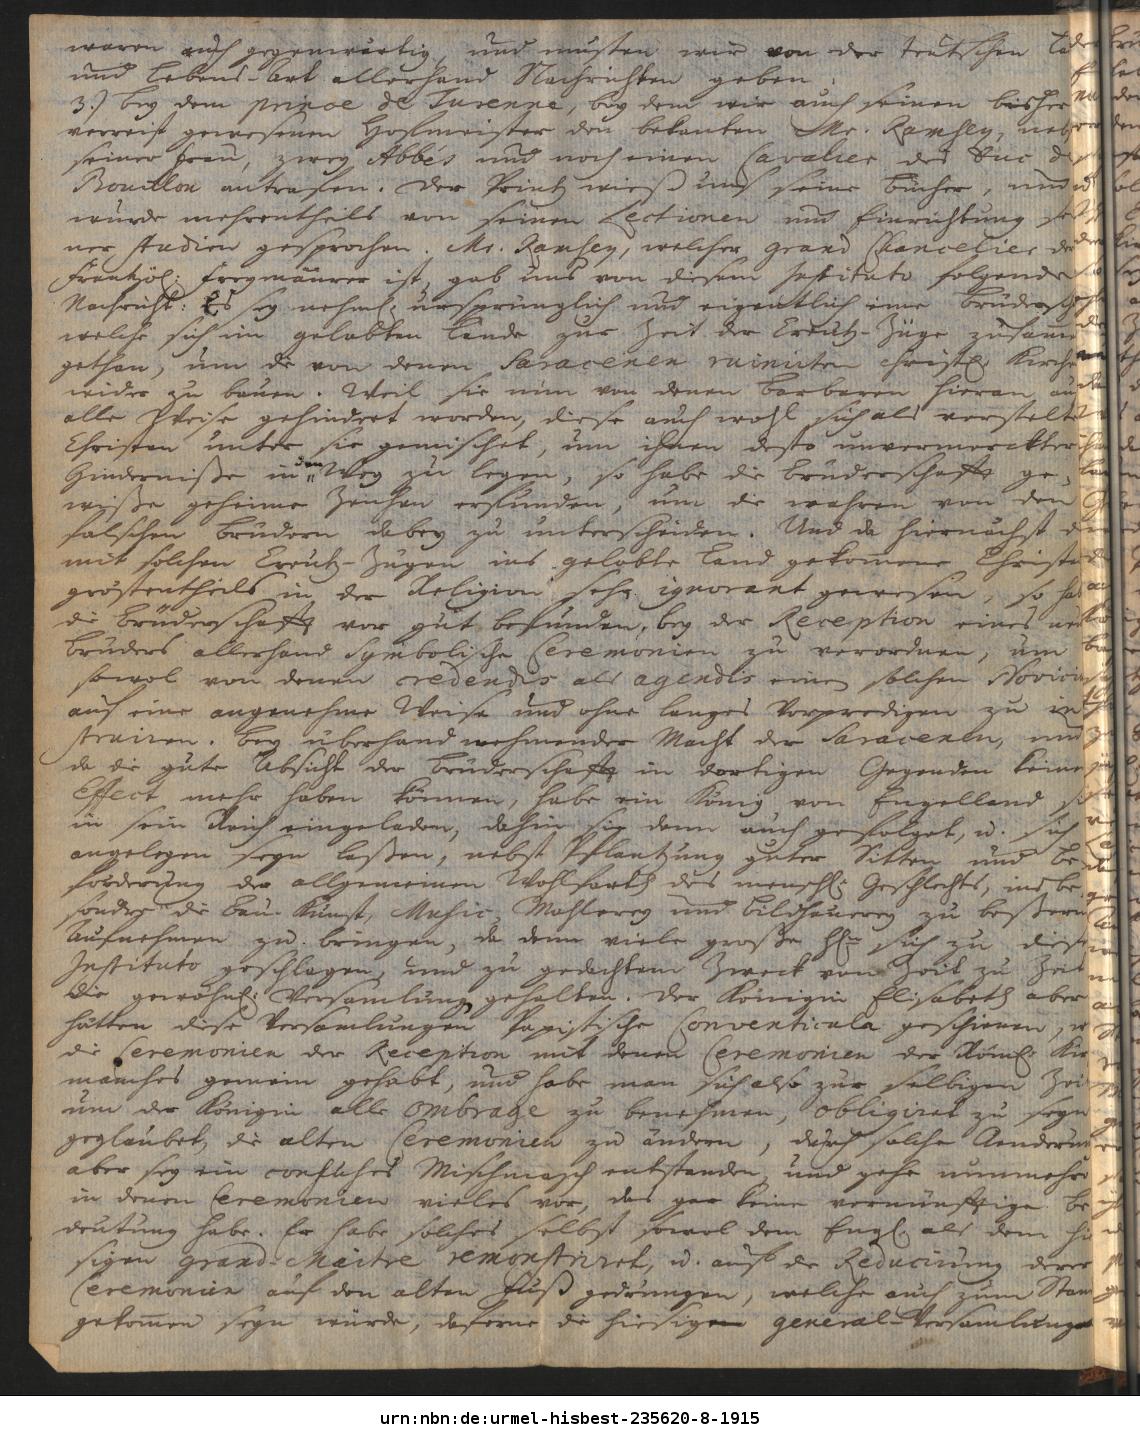 waren auch gegenwärtig, und musten wir von der teutschen
und Lebens-Art allerhand Nachrichten geben.
3.) bey dem prince de Turenne, bey dem wir auch seinen bisher
verreist gewesenen Hofmeister den bekanten Mr. Ramsey, nebst
seiner Frau, zwey Abbés und noch einen Cavalier des Duc de
Bouillon antrafen. Der Printz wieß uns seine Bücher, und
wurde mehrentheils von seinen Lectionen und Einrichtung sei
ner studien gesprochen. Mr. Ramsey, welcher grand Chancelier der
Frantzös. Freymäurer ist, gab uns von diesem Instituto folgende
Nachricht: Es sey nehml. ursprünglich und eigentlich eine Brüdersch
welche sich im gelobten Lande zur Zeit der Creutz-Züge zusammen
gethan, um die von denen Saracenen ruinirten christl. Kirchen
wider zu bauen. Weil sie nun von denen Barbaren hieran auf
alle Weise gehindert worden, diese auch wohl sich als verstelte
Christen unter sie gemischet, um ihnen desto unvermerckter
Hinderniße in den Weg zu legen, so habe die Brüderschafft ge-
wiße geheime Zeichen erfunden, um die wahren von den
falschen Brüdern dabey zu unterscheiden. Und da hiernächst die
mit solchen Creutz-Zügen ins gelobte Land gekommene Christen
gröstentheils in der Religion sehr ignorant gewesen, so hab
die Brüderschafft vor gut befunden, bey der Reception eines neu
Bruders allerhand symbolische Ceremonien zu verordnen, um
sowol von denen credendis als agendis einen solchen Novicium
auf eine angenehme Weise und ohne langes Vorpredigen zu in
struiren. Bey überhand nehmender Macht der Saracenen, und
da die gute Absicht der Brüderschafft in dortigen Gegenden keinen
Effect mehr haben können, habe ein König von Engelland sie
in sein Reich eingeladen, dahin sie denn auch gefolget, u. sich
angelegen seyn laßen, nebst Pflantzung guter Sitten und Be
förderung der allgemeinen Wohlfarth des menschl. Geschlechts, insbe
sonder die Bau-Kunst, Music, Mahlerey und Bildhauerey zu beßerm
Aufnehmen zu bringen, da denn viele große HE. sich zu diesem
Instituto geschlagen, und zu gedachtem Zweck von Zeit zu Zeit
die gewöhnl. Versamlung gehalten. Der Königin Elisabeth aber
hätten diese Versamlungen Papistische Conventicula geschienen,
die Ceremonien der Reception mit denen Ceremonien der Röml. Kir
manches gemein gehabt, und habe man sich also zur selbigen Zeit
um der Königin alle ombrage zu benehmen, obligiret zu seyn
geglaubet, die alten Ceremonien zu ändern, durch solche Aenderung
aber sey ein Mischmasch entstanden, und gehe nunmehro
in denen Ceremonien vieles vor, das gar keine vernünfftige Be
deutung habe. Er habe solches selbst sowol dem Engl. als dem hie
sigen grand-Maitre remonstriret, u. auf die Reducirung derer
Ceremonien auf den alten Fuß gedrungen, welche auch zum Stan
gekommen seyn würde, daferne die hiesigen general-Versamlungen
urn:nbn:de:urmel-hisbest-235620-8-1915